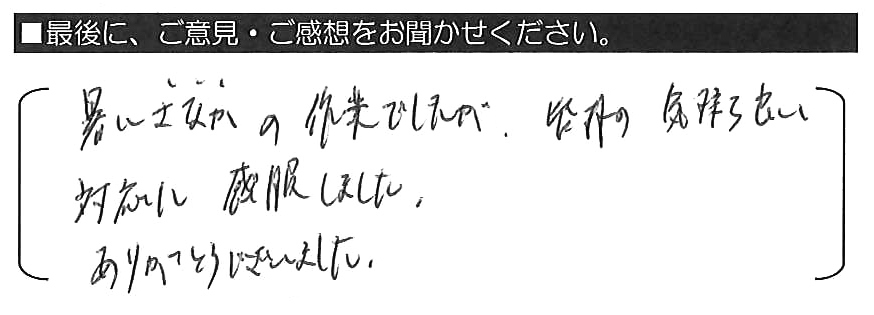 ■最後に、ご意見・ご感想をお聞かせください。
暑いさなかの作業でしたが、皆様の気持ち良い
対応に感服しました。
ありがとうございました。